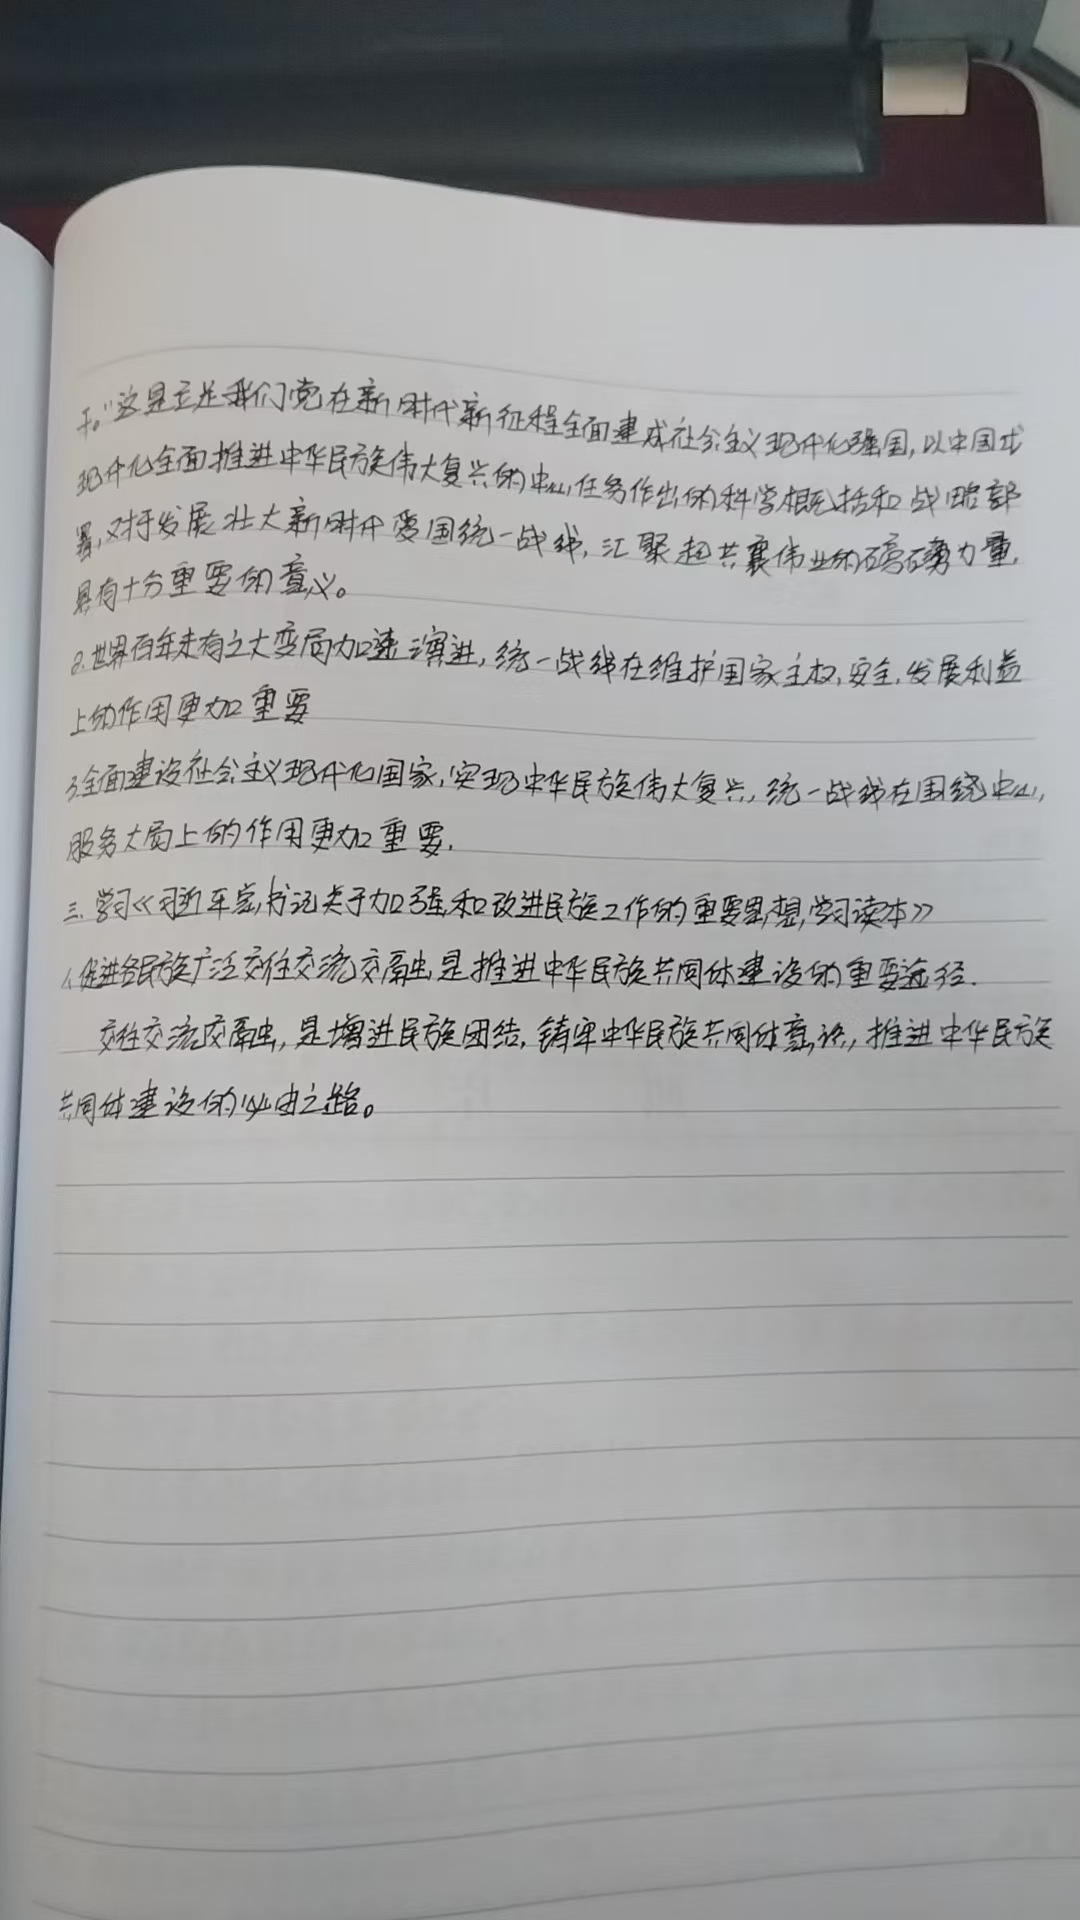 干。"这是立足我们党在新时代新征程全面建成社会主义现代化强国,以中国式
现代化全面推进中华民族伟大复兴的中心任务作出的科学概括和战略部
署,对于发展壮大新时代爱国统一战线,汇聚起共襄伟业的磅礴力量,
具有十分重要的意义。
2.世界百年未有之大变局加速演进,统一战线在维护国家主权,安全,发展利益
上的作用更加重要
3.全面建设社会主义现代化国家,实现中华民族伟大复兴,统一战线在围绕中心,
服务大局上的作用更加重要.
三.学习《习近平总书记关于加强和改进民族工作的重要思想,学习读本》
1.促进各民族广泛交往交流交融是推进中华民族共同体建设的重要途径.
交往交流交融,是增进民族团结,铸牢中华民族共同体意识,推进中华民族
共同体建设的必由之路。